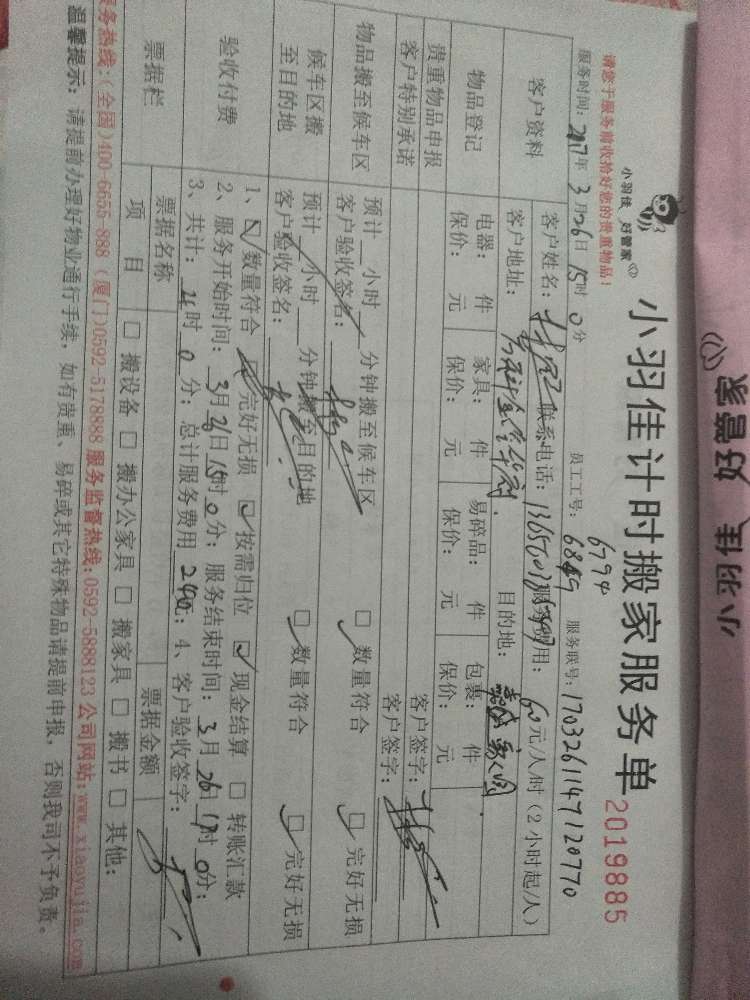 小羽佳 好管家
小羽佳 好管家
小羽佳计时搬家服务单
2019885
请您于服务前收拾好您的贵重物品!
员工工号: 6794 6849
服务时间: 2017年 3月26日 15时 0分
服务联号: 1703261147120770
客户资料
客户姓名:
联系电话:
服务费用: 60元/人/时(2小时起/人)
客户地址:
目的地:
物品登记
电器: 件 家具: 件 易碎品: 件 包裹: 件
保价: 元 保价: 元 保价: 元 保价: 元
贵重物品申报
客户签字:
客户特别承诺
客户签字:
物品搬至候车区
预计 小时 分钟搬至候车区
☐数量符合 ☐完好无损
客户验收签名:
候车区搬至目的地
预计 小时 分钟搬至目的地
☐数量符合 ☐完好无损
客户验收签名:
验收付费
1、☐数量符合 ☐完好无损 ☐按需归位 ☐现金结算 ☐转账汇款
2、服务开始时间: 3月26日15时0分; 服务结束时间: 3月26日17时0分;
3、共计: 2时0分; 总计服务费用 240元; 4、客户验收签字:
票据栏
票据名称
票据金额
项目
☐搬设备 ☐搬办公家具 ☐搬家具 ☐搬书 ☐其他:
服务热线:(全国)400-6655-888 (厦门)0592-5178888 服务监督热线:0592-5888123 公司网站:www.xiaoyujia.com
温馨提示: 请提前办理好物业通行手续, 如有贵重、易碎或其它特殊物品请提前申报, 否则我司不予负责。